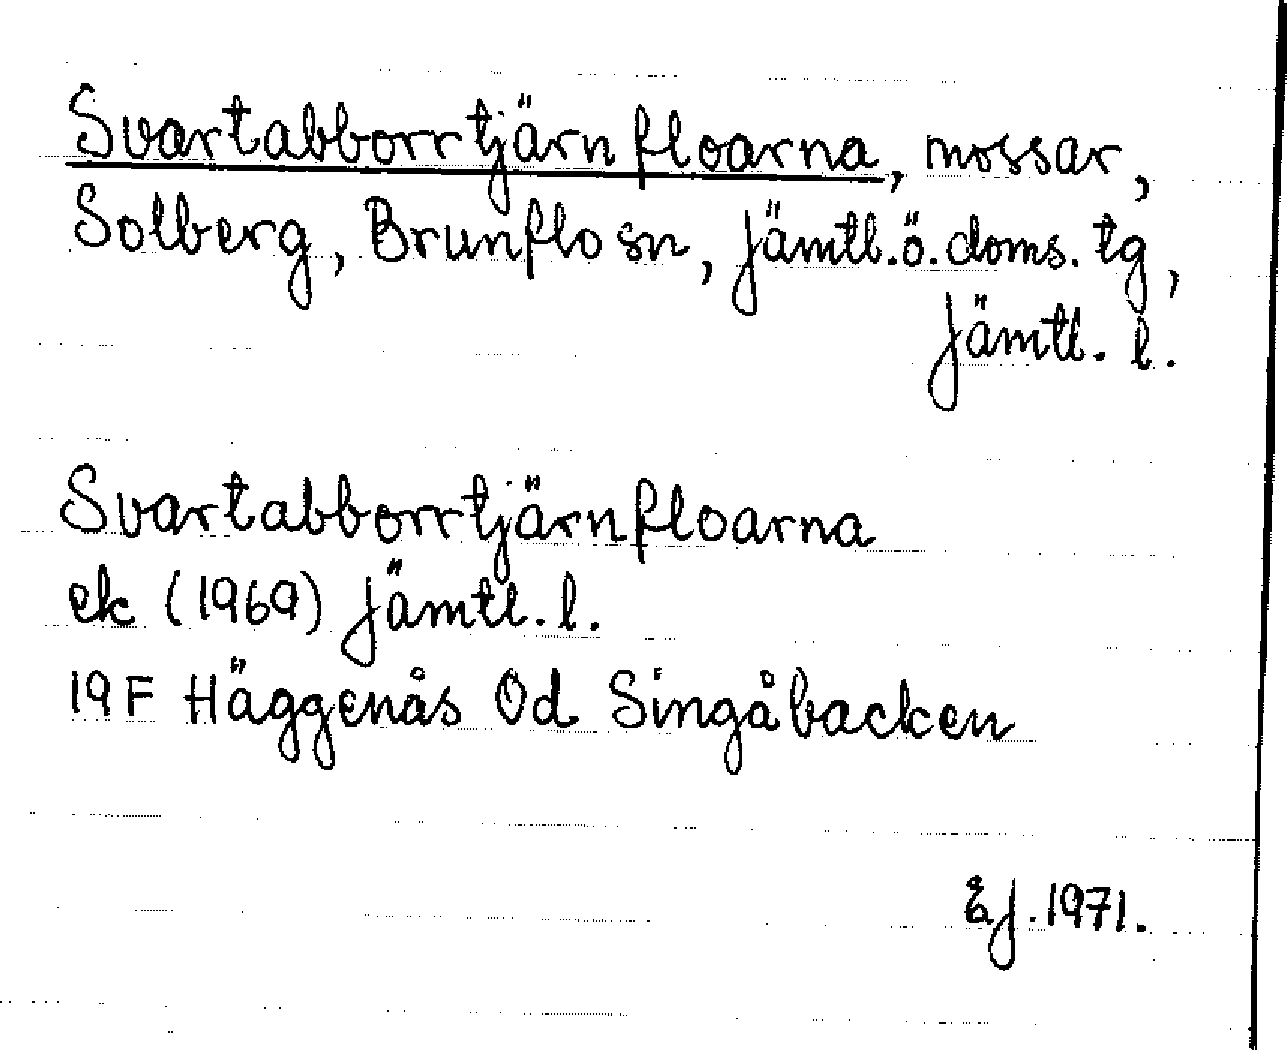 Svartabborrtjärnfloarna, mossar,
Solberg, Brunflo sn, Jämtl.ö.doms.tg,
Jämtl. l.
Svartabborrtjärnfloarna
ek (1969) Jämtl. l.
19F Häggenås 0d Singåbacken
EJ. 1971.